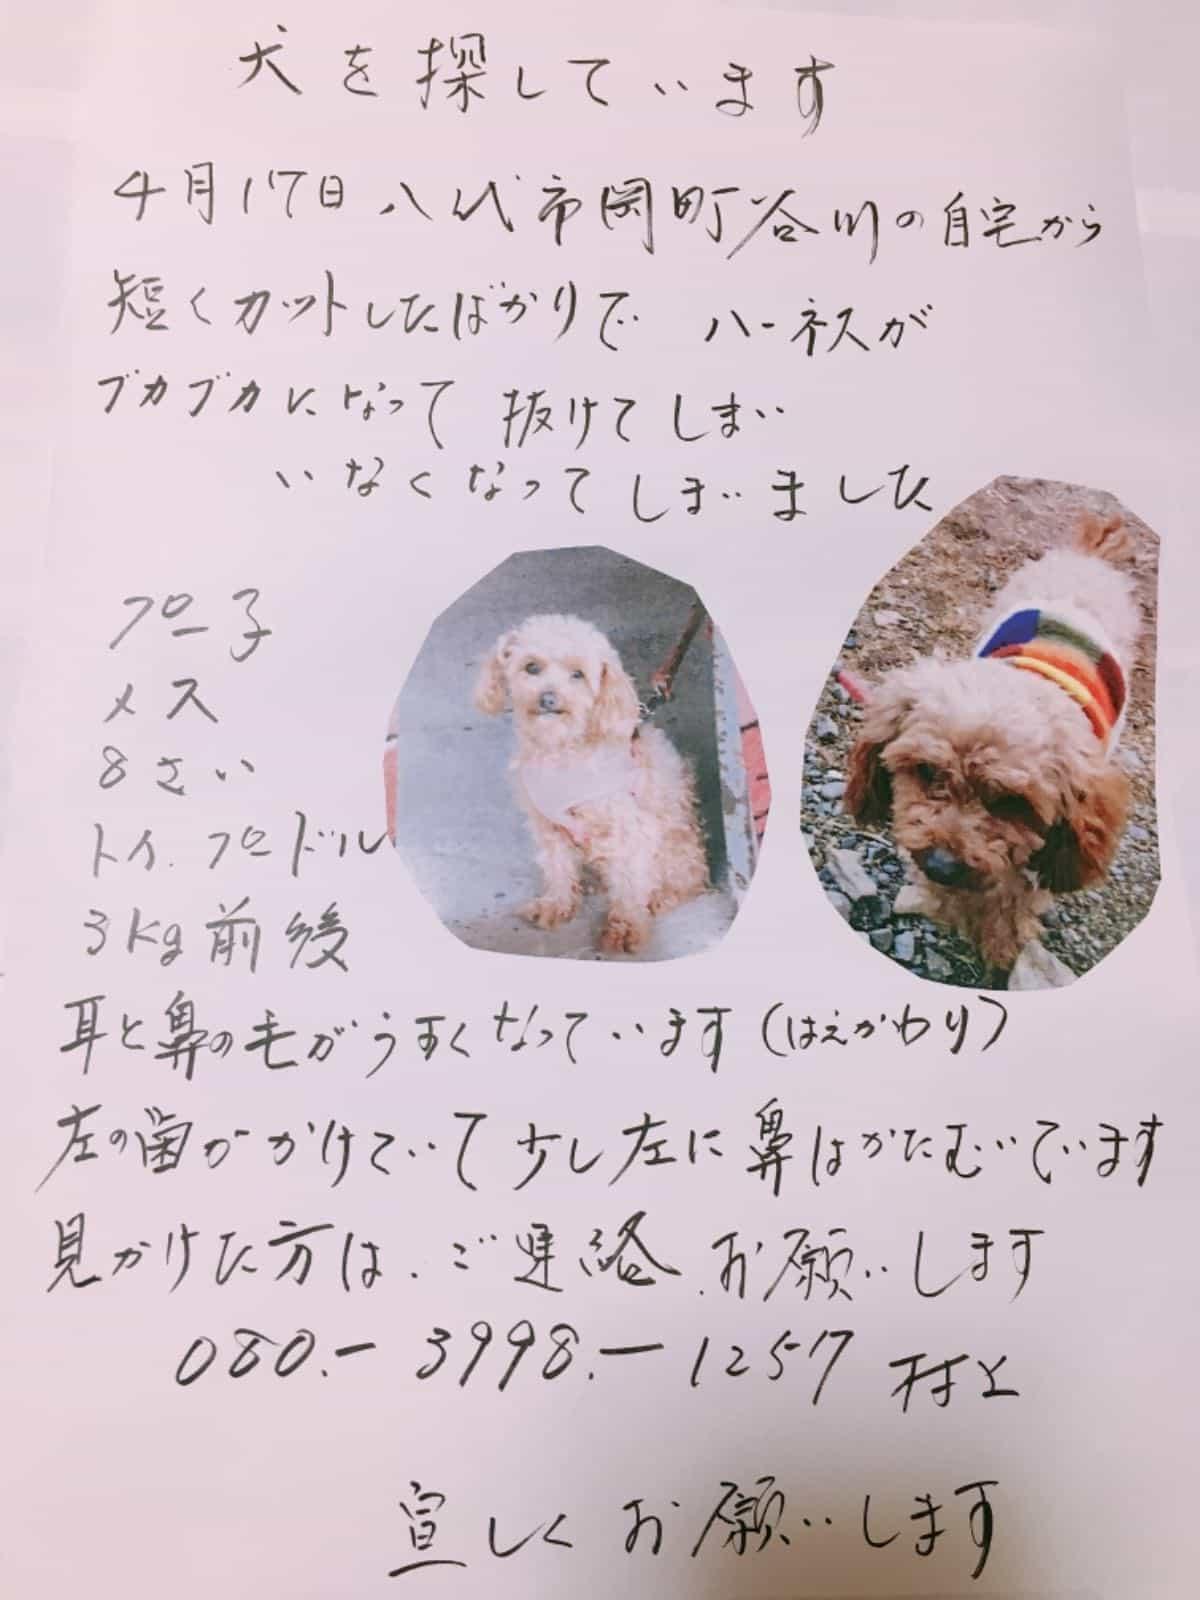 犬を探しています
4月17日 八代市岡町谷川の自宅から
短くカットしたばかりで ハーネスが
ブカブカになって 抜けてしまい
いなくなってしまいました
プー子
メス
8さい
トイ.プードル
3kg前後
耳と鼻の毛がうすくなっています(はえかわり)
左の歯がかけていて少し左に鼻はかたむいでいます
見かけた方は.ご連絡.お願いします
080.-3998.-1257 村上
宜しくお願いします